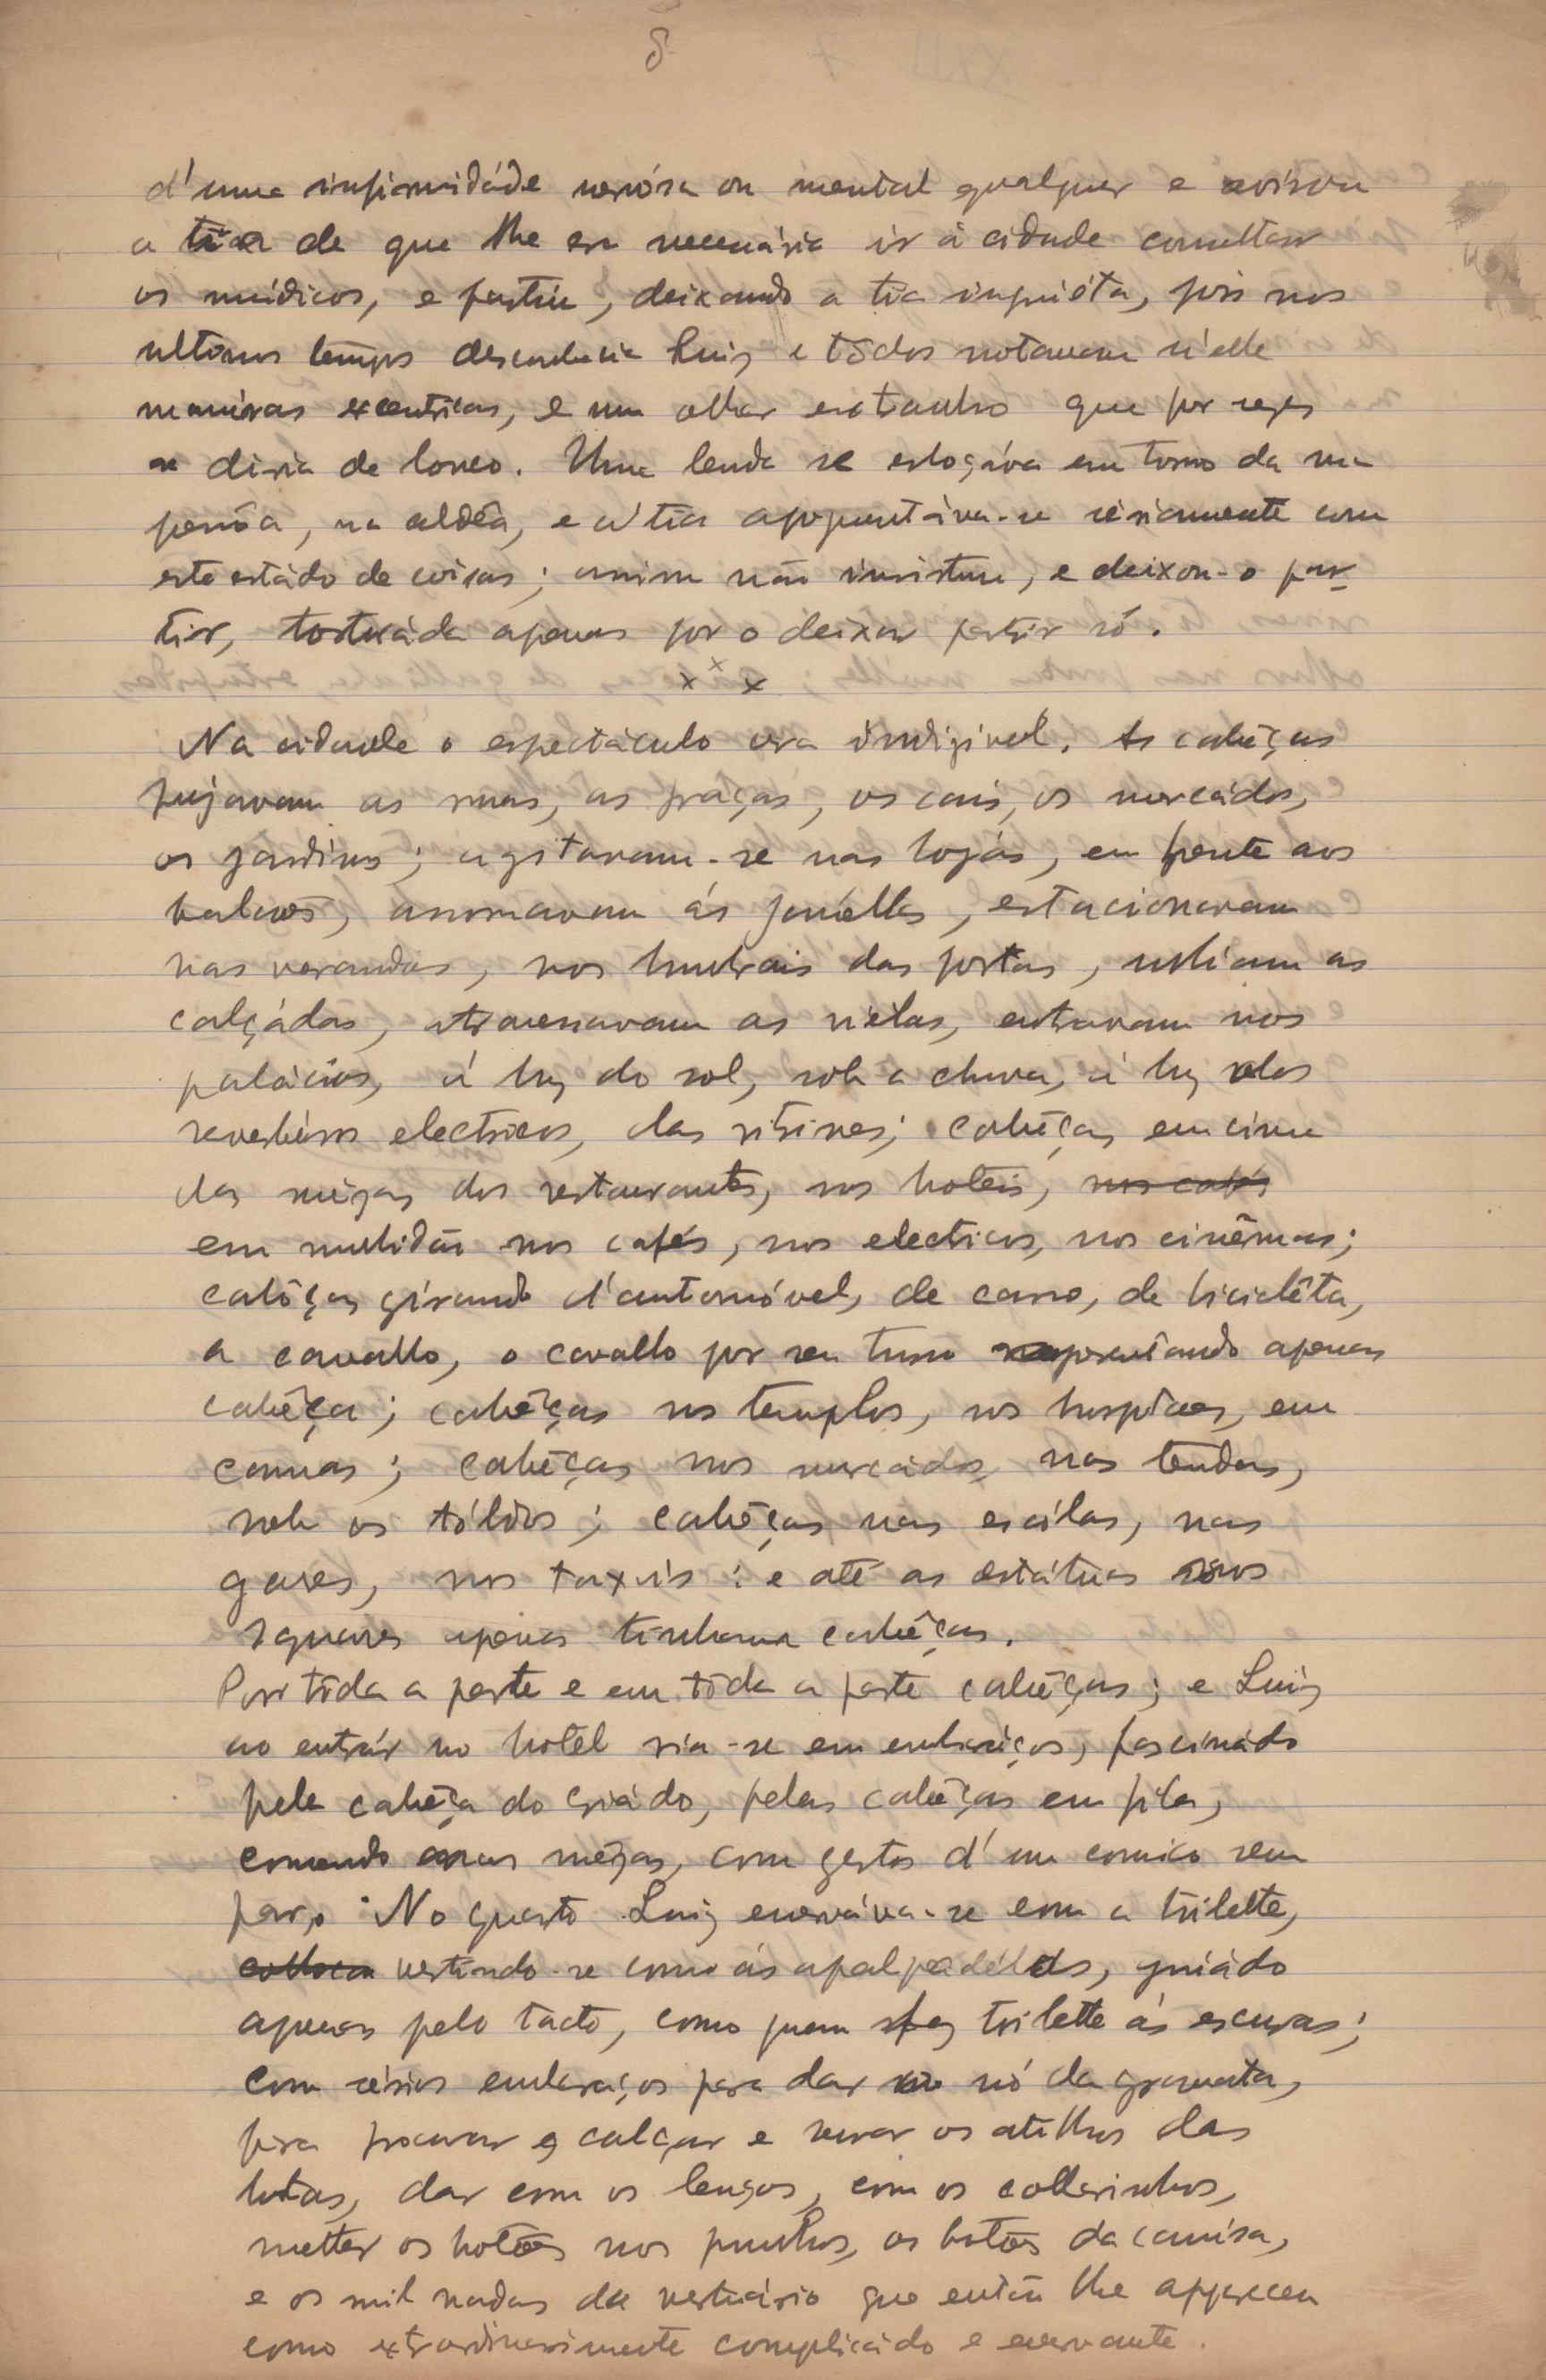 8
d'uma infiermidáde nervósa ou mental qualquer e avisou
a tia de que lhe era necessário ir á cidade consultar
os médicos, e partiu, deixando a tia inquiéta, pois nos
ultimos tempos desconhecia Luiz e tôdos notavam n'elle
maneiras excentricas, e um olhar estranho que por vezes
se diria de louco. Uma lenda se esboçáva em torno da sua
pessôa, na aldêa, e a tia apoquentáva-se sériamente com
este estádo de coisas; assim não insistiu, e deixou-o par-
tir, torturáda apenas por o deixar partir só.
x x x
Na cidade o espectáculo era indizivel. As cabêças
pejavam as ruas, as praças, os cais, os mercádos,
os jardins; agitavam-se nas lojas, em frente aos
balcões, assomavam ás janéllas, estacionavam
nas verandas, nos humbrais das portas, subiam as
calçádas, atravessavam as viélas, entravam nos
palácios, á luz do sol, sob a chuva, á luz dos
reverbéros electricos, das vitrines; cabêças em cima
das mêzas dos restaurantes, nos hoteis, nos cafés
em multidão nos cafés, nos electricos, nos cinêmas;
cabêças girando d'automóvel, de carro, de bicicléta,
a cavallo, o cavallo por seu turno apresentando apenas
cabêça; cabêças nos templos, nos hospicios, em
camas; cabêças nos mercádos, nas tendas,
sob os tôldos; cabêças nas escólas, nas
gares, nos taxis: e até as estátuas nos
squares apenas tinham cabêças.
Por tôda a parte e em tôda a parte cabêças; e Luiz
ao entrár no hotel via-se em embaraços, fascinádo
pela cabêça do criádo, pelas cabêças em fila,
comendo nas mêzas, com gestos d'um comico sem
par. No quarto Luiz enerváva-se com a toilette,
vestindo-se como ás apalpadélas, guiádo
apenas pelo tacto, como quem faz toilette ás escuras;
com sérios embaraços para dar o nó da gravata,
para procurar e calçar e os atilhos das
botas, dar com os lenços, com os collarinhos,
metter os botões nos punhos, os botões da camisa,
e os mil nadas do vestuário que então lhe appareceu
como extraordinariamente complicádo e enervante.